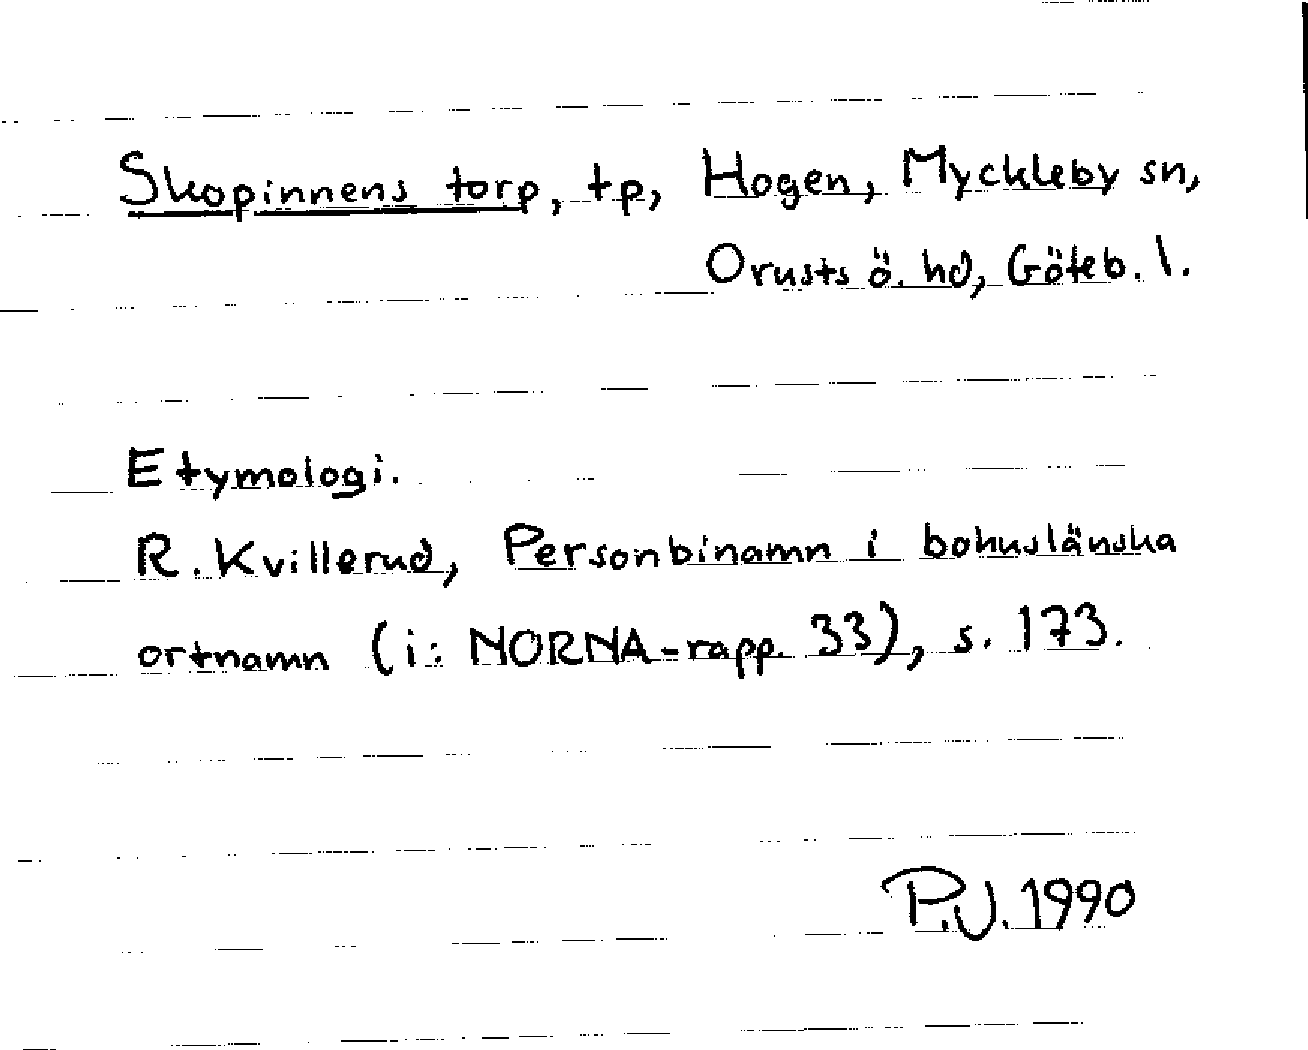 Skopinnens torp, tp, Hogen, Myckleby sn,
Orusts ö. hd, Göteb. l.
Etymologi.
R. Kvillerud, Personbinamn i bohuslänska
ortnamn (i: NORNA-rapp. 33), s. 173.
P.J. 1990